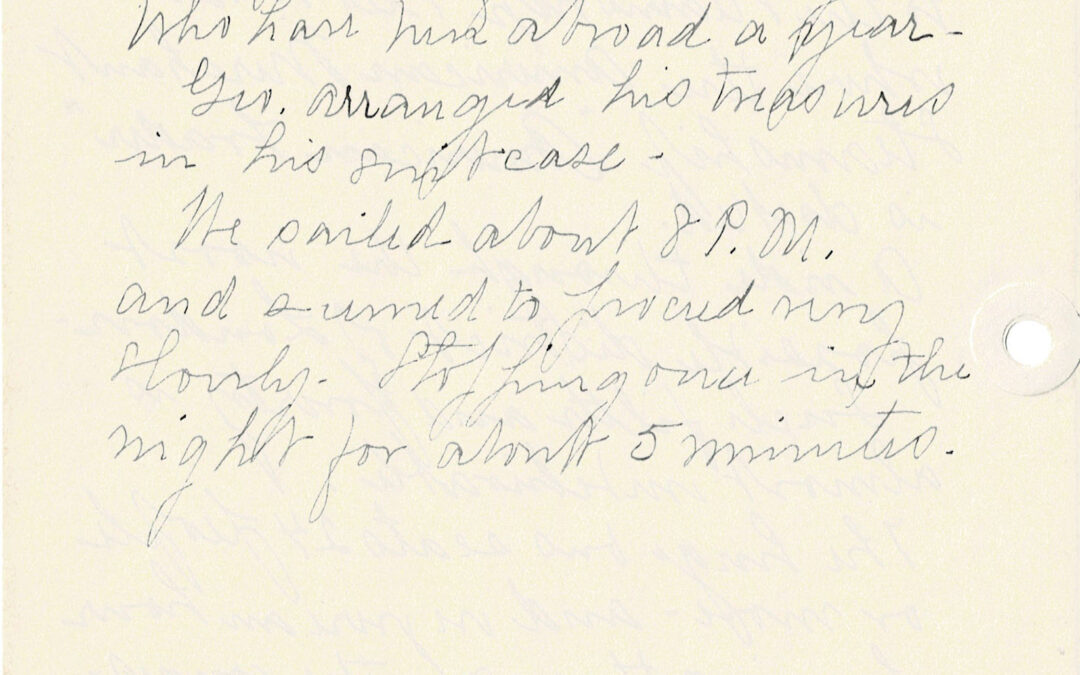 who have been abroad a year-
Geo. arranged his treasures
in his suitcase-
We sailed about 8 P.M.
and seemed to proceed very
slowly. Stopping once in the
night for about 5 minutes.